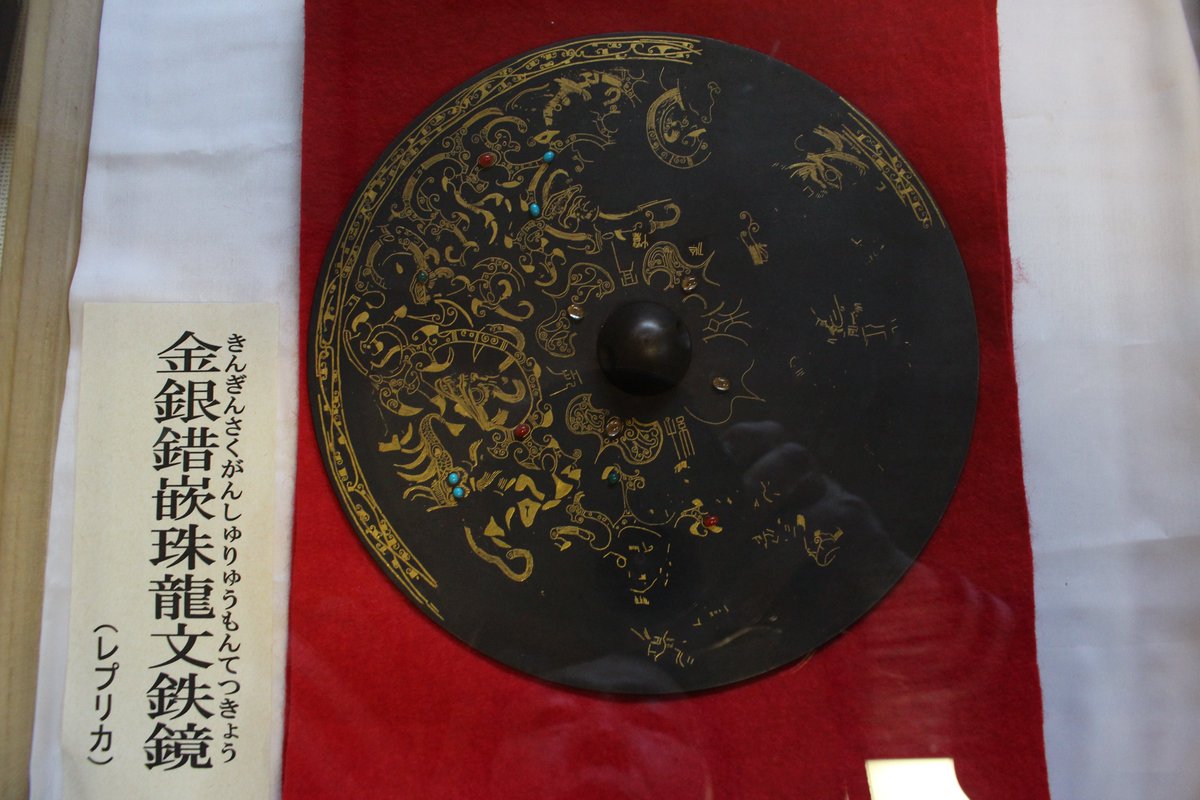 金銀錯嵌珠龍文鉄鏡
きんぎんさくがんしゅりゅうもんてつきょう
（レプリカ）